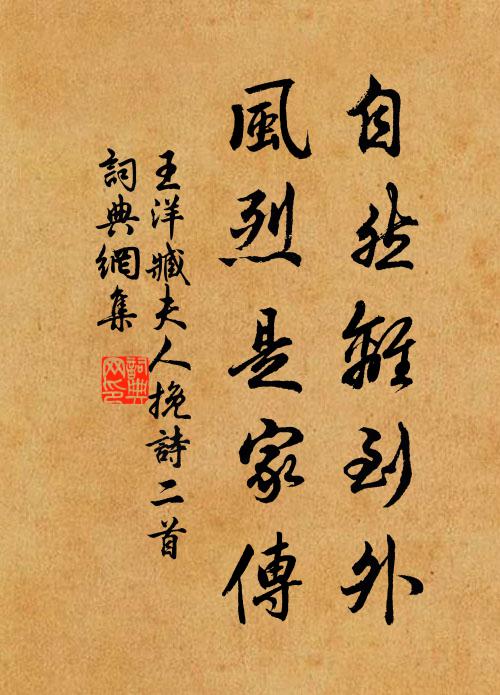 自然到外
風烈是家傳
王洋臧夫人挽詩二首
詞典網集
詞典
网印